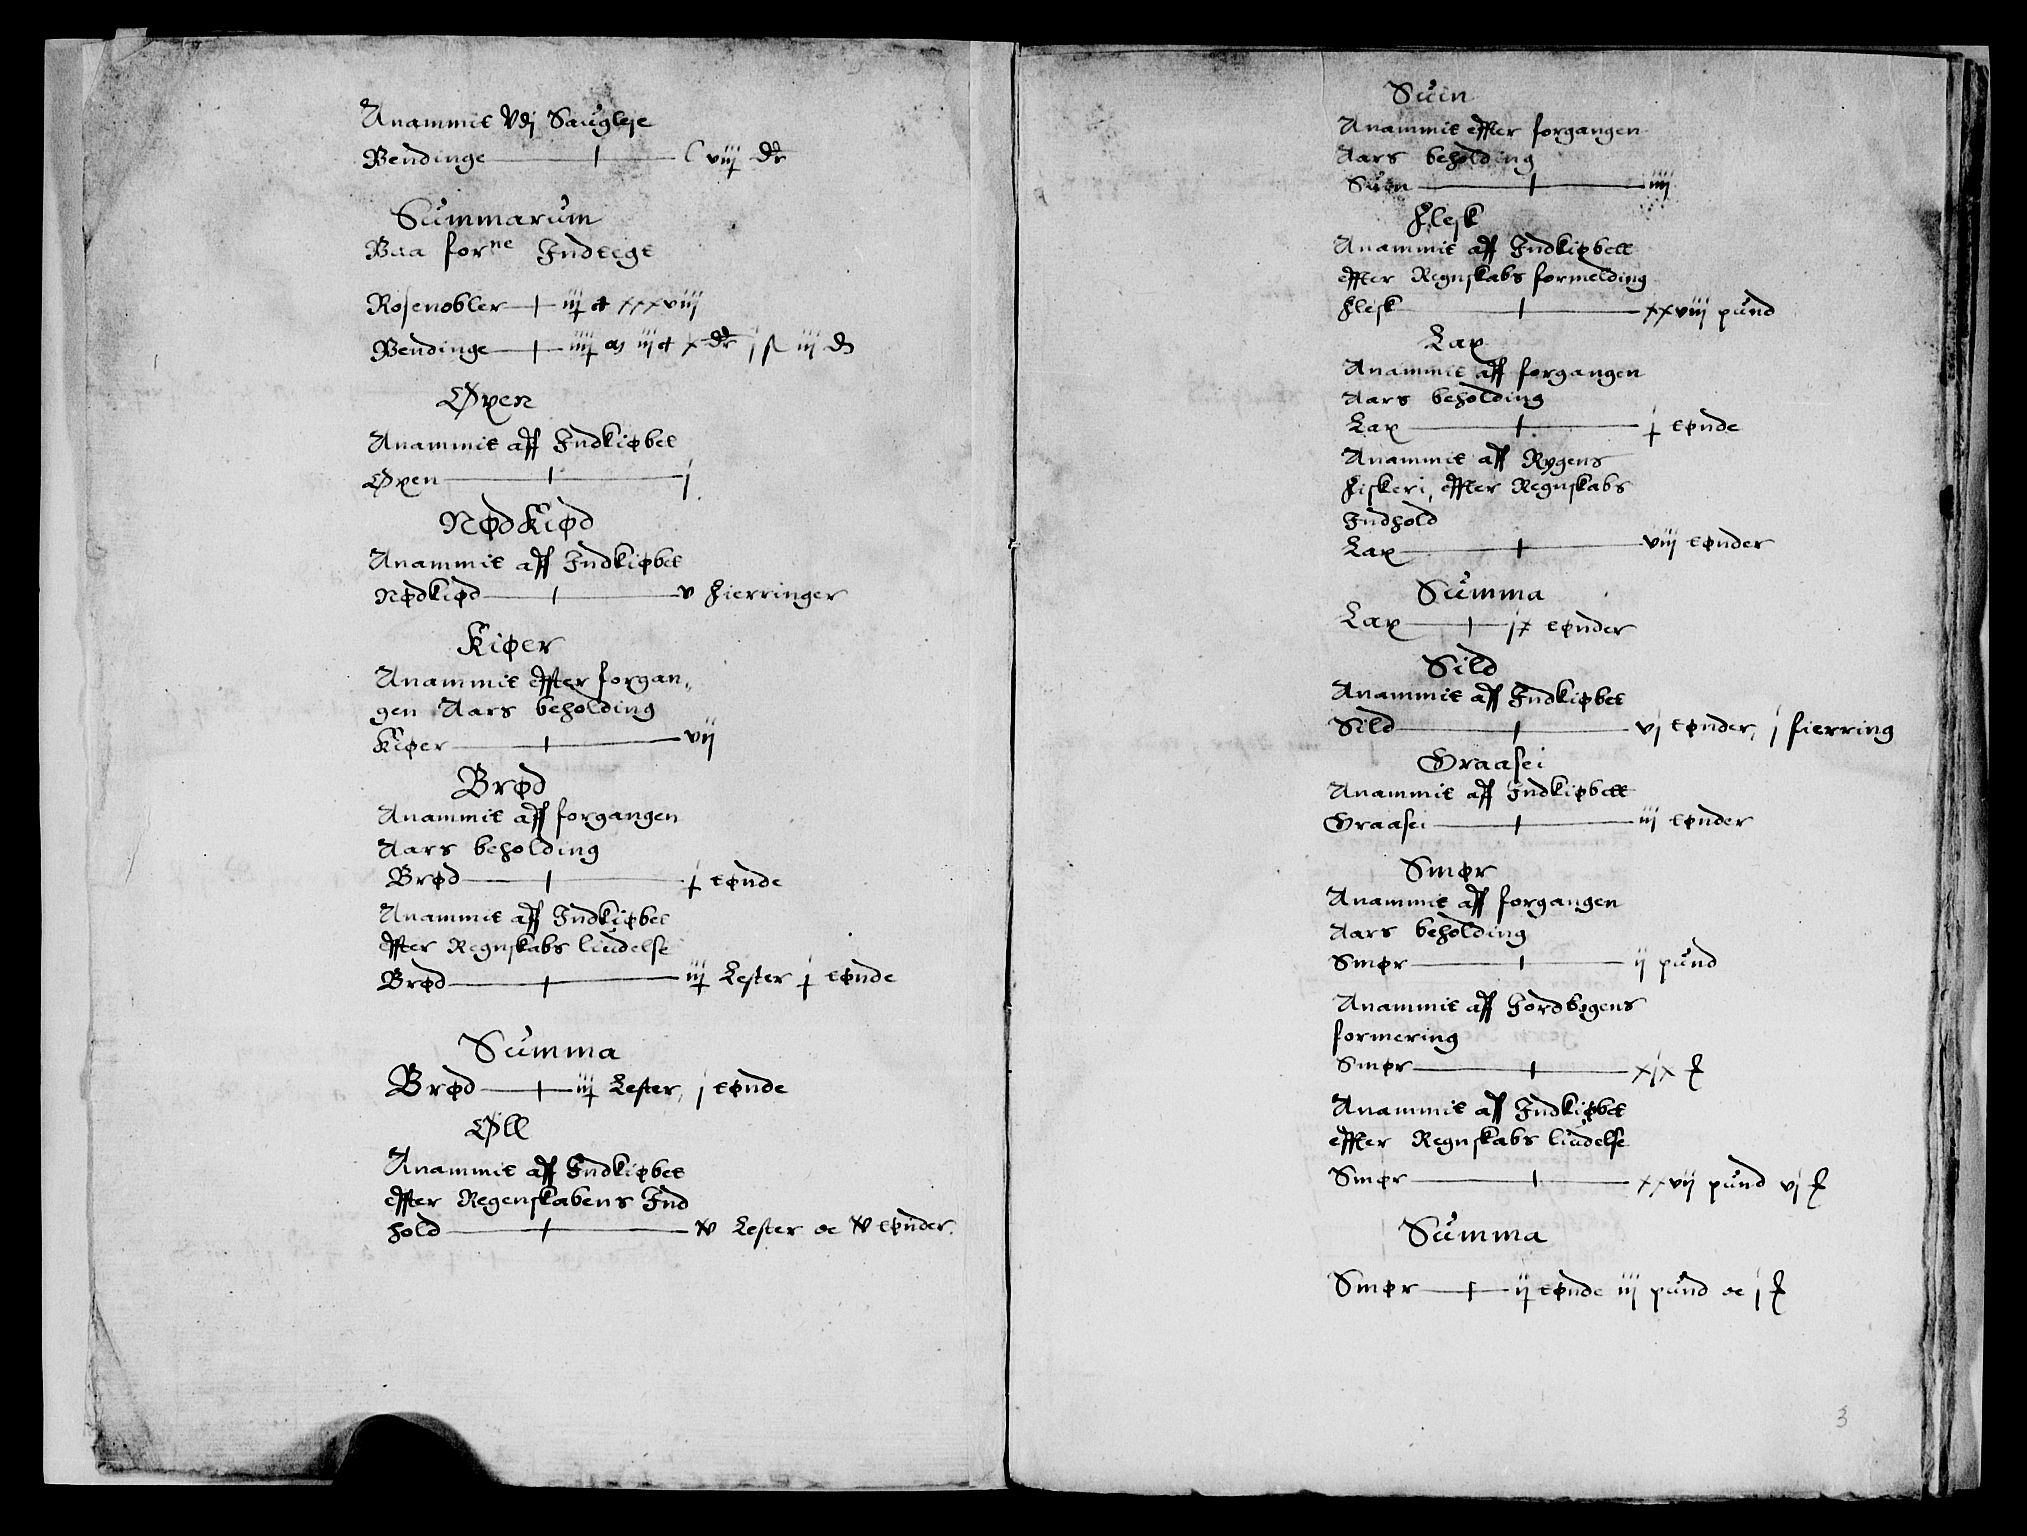 Anammit Vdj Saugleje
Pendinge — C viij dr

Summarum
Paa forne Indtegt

Rosenobler — iij ct xxxviij
Pendinge — iiij m iij ct x dr j s iij d

Øxen
Anammit aff Indkiøbet
Øxen — j

Nødkiød
Anammit aff Indkiøbet
Nødkiød — v Fierringer

Kiøer
Anammit effter forgan„
gen Aars beholding
Kiøer — vij

Brød
Anammit aff forgangen
Aars beholding
Brød — j tønde
Anammit aff Indkiøbet
effter Regnskabs liudelse
Brød — iij Lester j tønde

Summa
Brød — iij Lester, j tønde

Øll
Anammit aff Indkiøbet
effter Regenskabens Ind
hold — xv Lester oc xv tønder.

Suin
Anammit effter forgangen
Aars beholding
Suin — iiij

Flesk
Anammit aff Indkiøbett
effter Regnskabs formelding
Flesk — xxviij pund

Lax
Anammit aff forgangen
Aars beholding
Lax — j tønde
Anammit aff Rygens
Fiskeri, effter Regnskabs
Indhold
Lax — viij tønder

Summa
Lax — ix tønder

Sild
Anammit aff Indkiøbet
Sild — vj tønder, j fierring

Graasei
Anammit aff Indkiøbett
Graasei — iij tønder

Smør
Anammit aff forgangen
Aars beholding
Smør — ij pund
Anammit aff Jordbogens
formering
Smør — xix
Anammit aff Indkiøbet
effter Regnskabs liudelse
Smør — xxvij pund vj

Summa
Smør — ij tønde iij pund oc j
3